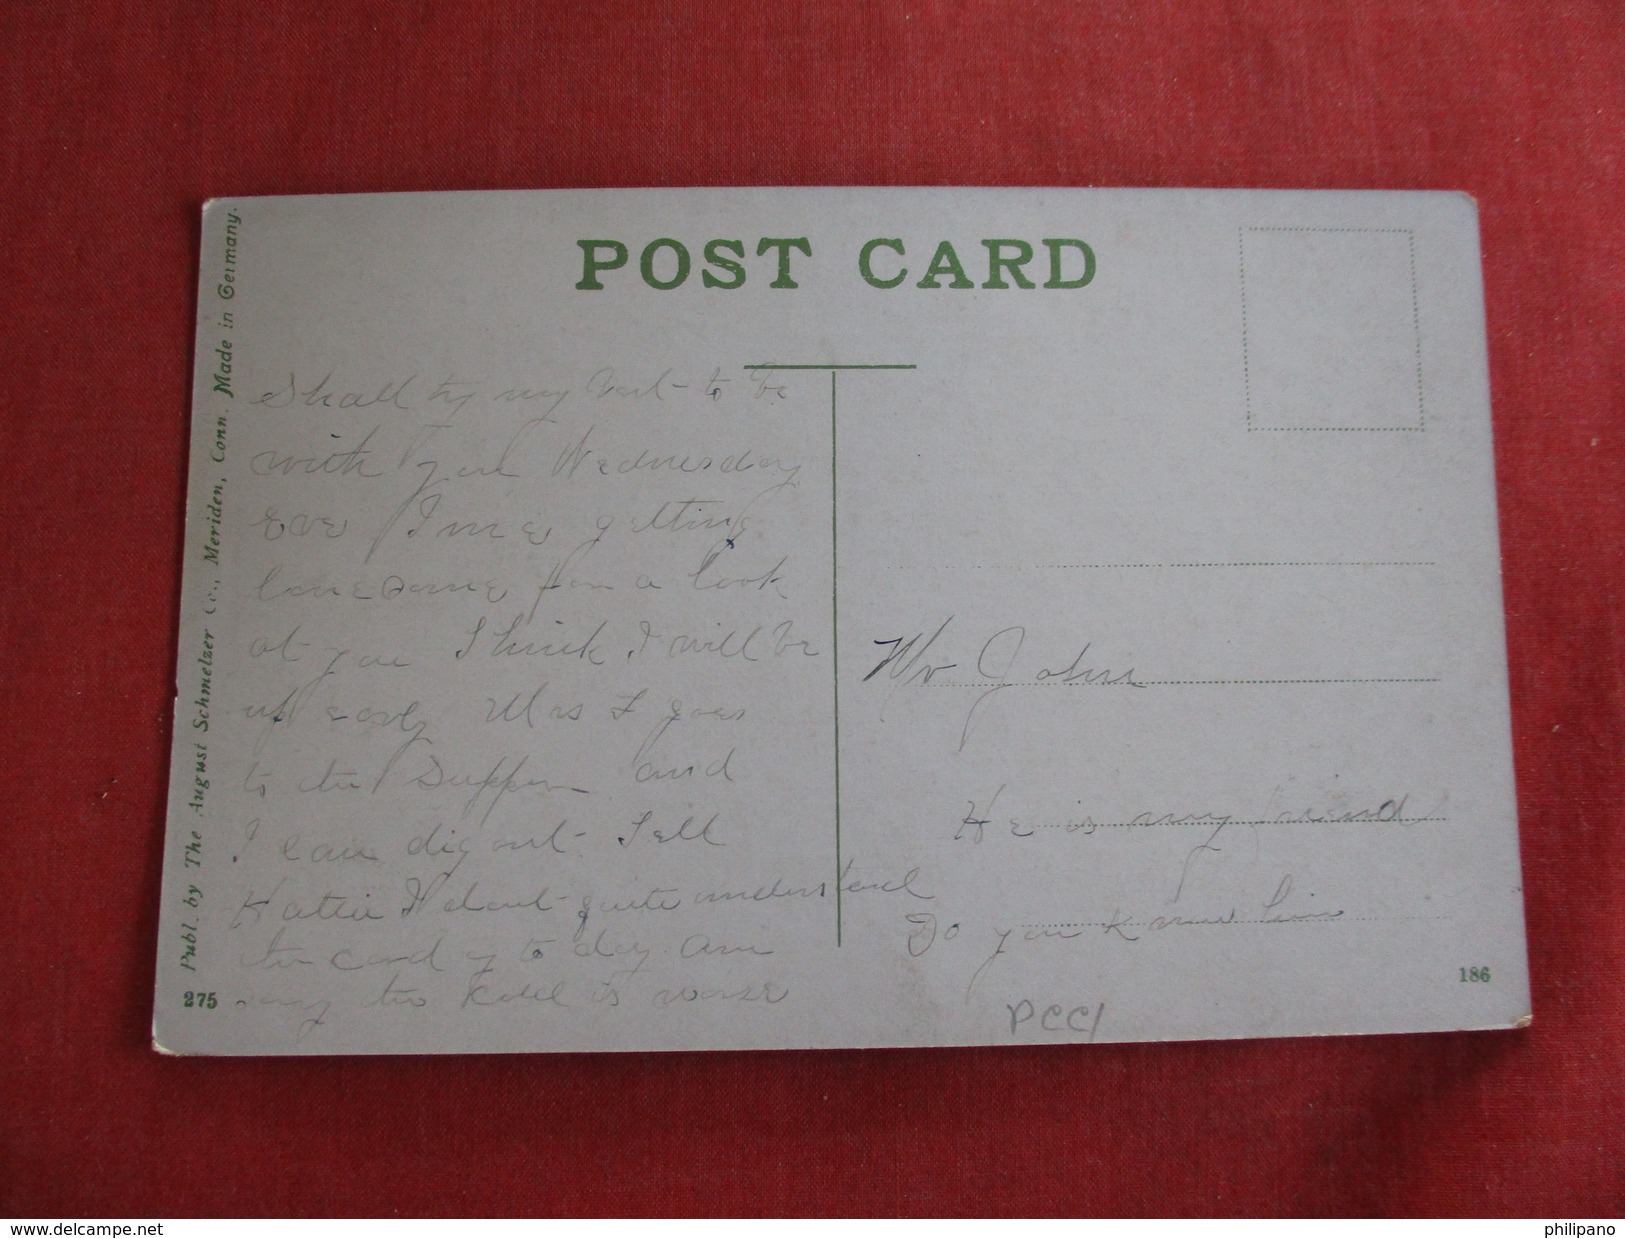 POST CARD
Publ. by The August Schmelzer Co., Meriden, Conn. Made in Germany.
Shall try my best to be
with you Wednesday
eve I me getting
lonesome for a look
at you I think I will be
up early Mrs F goes
to the Supper and
I can dig out. Tell
Katie I dont quite understand
the card of to day. Am
the cold is worse
Mr John
He is my friend
Do you know him
PCC1
275
186
delcampe.net
philipano